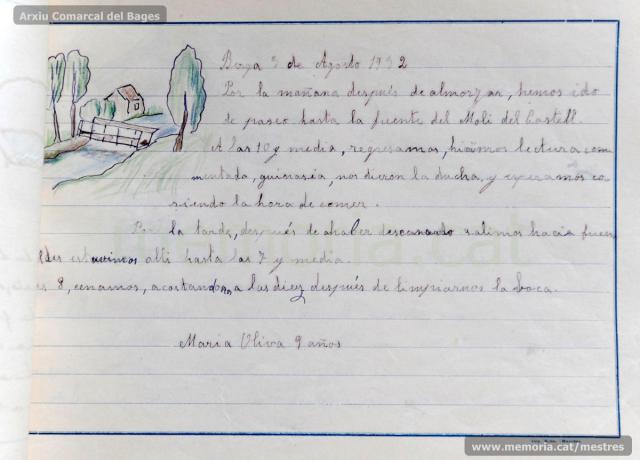 Arxiu Comarcal del Bages
Baga 3 de Agosto 1932
Por la mañana después de almorzar, hemos ido
de paseo hasta la fuente del Moli del Castell.
A las 10 y media, regresamos, hicimos lectura com
mentada, guinasia, nos dieron la ducha, y esperamos co
siendo la hora de comer.
Por la tarde, después de ahaber descansado salimos hacia fuen
estuvimos alli hasta las 7 y media.
8, cenamos, acostandonos a las diez después de limpiarnos la boca.
Maria Oliva 9 años
memoria.cat
www.memoria.cat/mestres